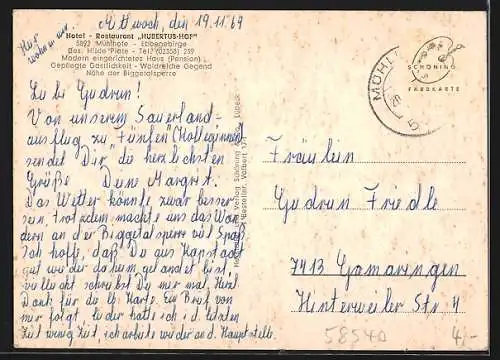 Mittwoch, den 19.11.69
Hier wohnen wir.
Hotel - Restaurant „HUBERTUS-HOF"
5892 Mühlhofe - Ebbegebirge
Bes. Hilde Plate - Tel. (02358) 259
Modern eingerichtetes Haus (Pension)
Gepflegte Gastlichkeit - Waldreiche Gegend
Nähe der Biggetalsperre
Liebe Gudrun!
Von unserem Sauerland-
ausflug zu Fünfen (Kolleginnen)
sendet Dir die herzlichsten
Grüße Deine Margret.
Das Wetter könnte zwar besser
sein, trotzdem machte uns das Wan-
dern an der Biggetalsperre viel Spaß.
Ich hoffe, daß Du aus Kapstadt
gut wieder daheim gelandet bist,
vielleicht schreibst Du mir mal. Herzl.
Dank für die lb. Karte. Ein Brief von
mir folgt, leider hatte ich i. d. letzten
Zeit wenig Zeit, ich arbeite wieder an d. Hauptstelle.
Verlag Schöning Lübeck
Besteller: Volbert
SCHÖNING
FARBKARTE
MÜHL
Fräulein
Gudrun Friedle
7413 Gomaringen
Hinterweiler Str. 4
58540
4,-